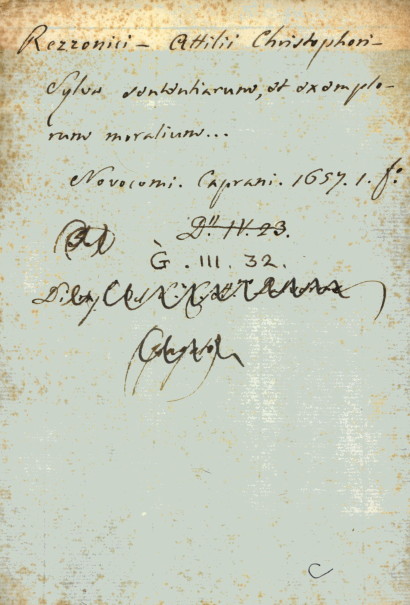 Rezzonici - Attilii Christophori -
Sylva sententiarum, et exemplo-
rum moralium...
Novocomi. Caprani. 1657. 1. f.º
D". IV. 23.
G . III . 32.
C